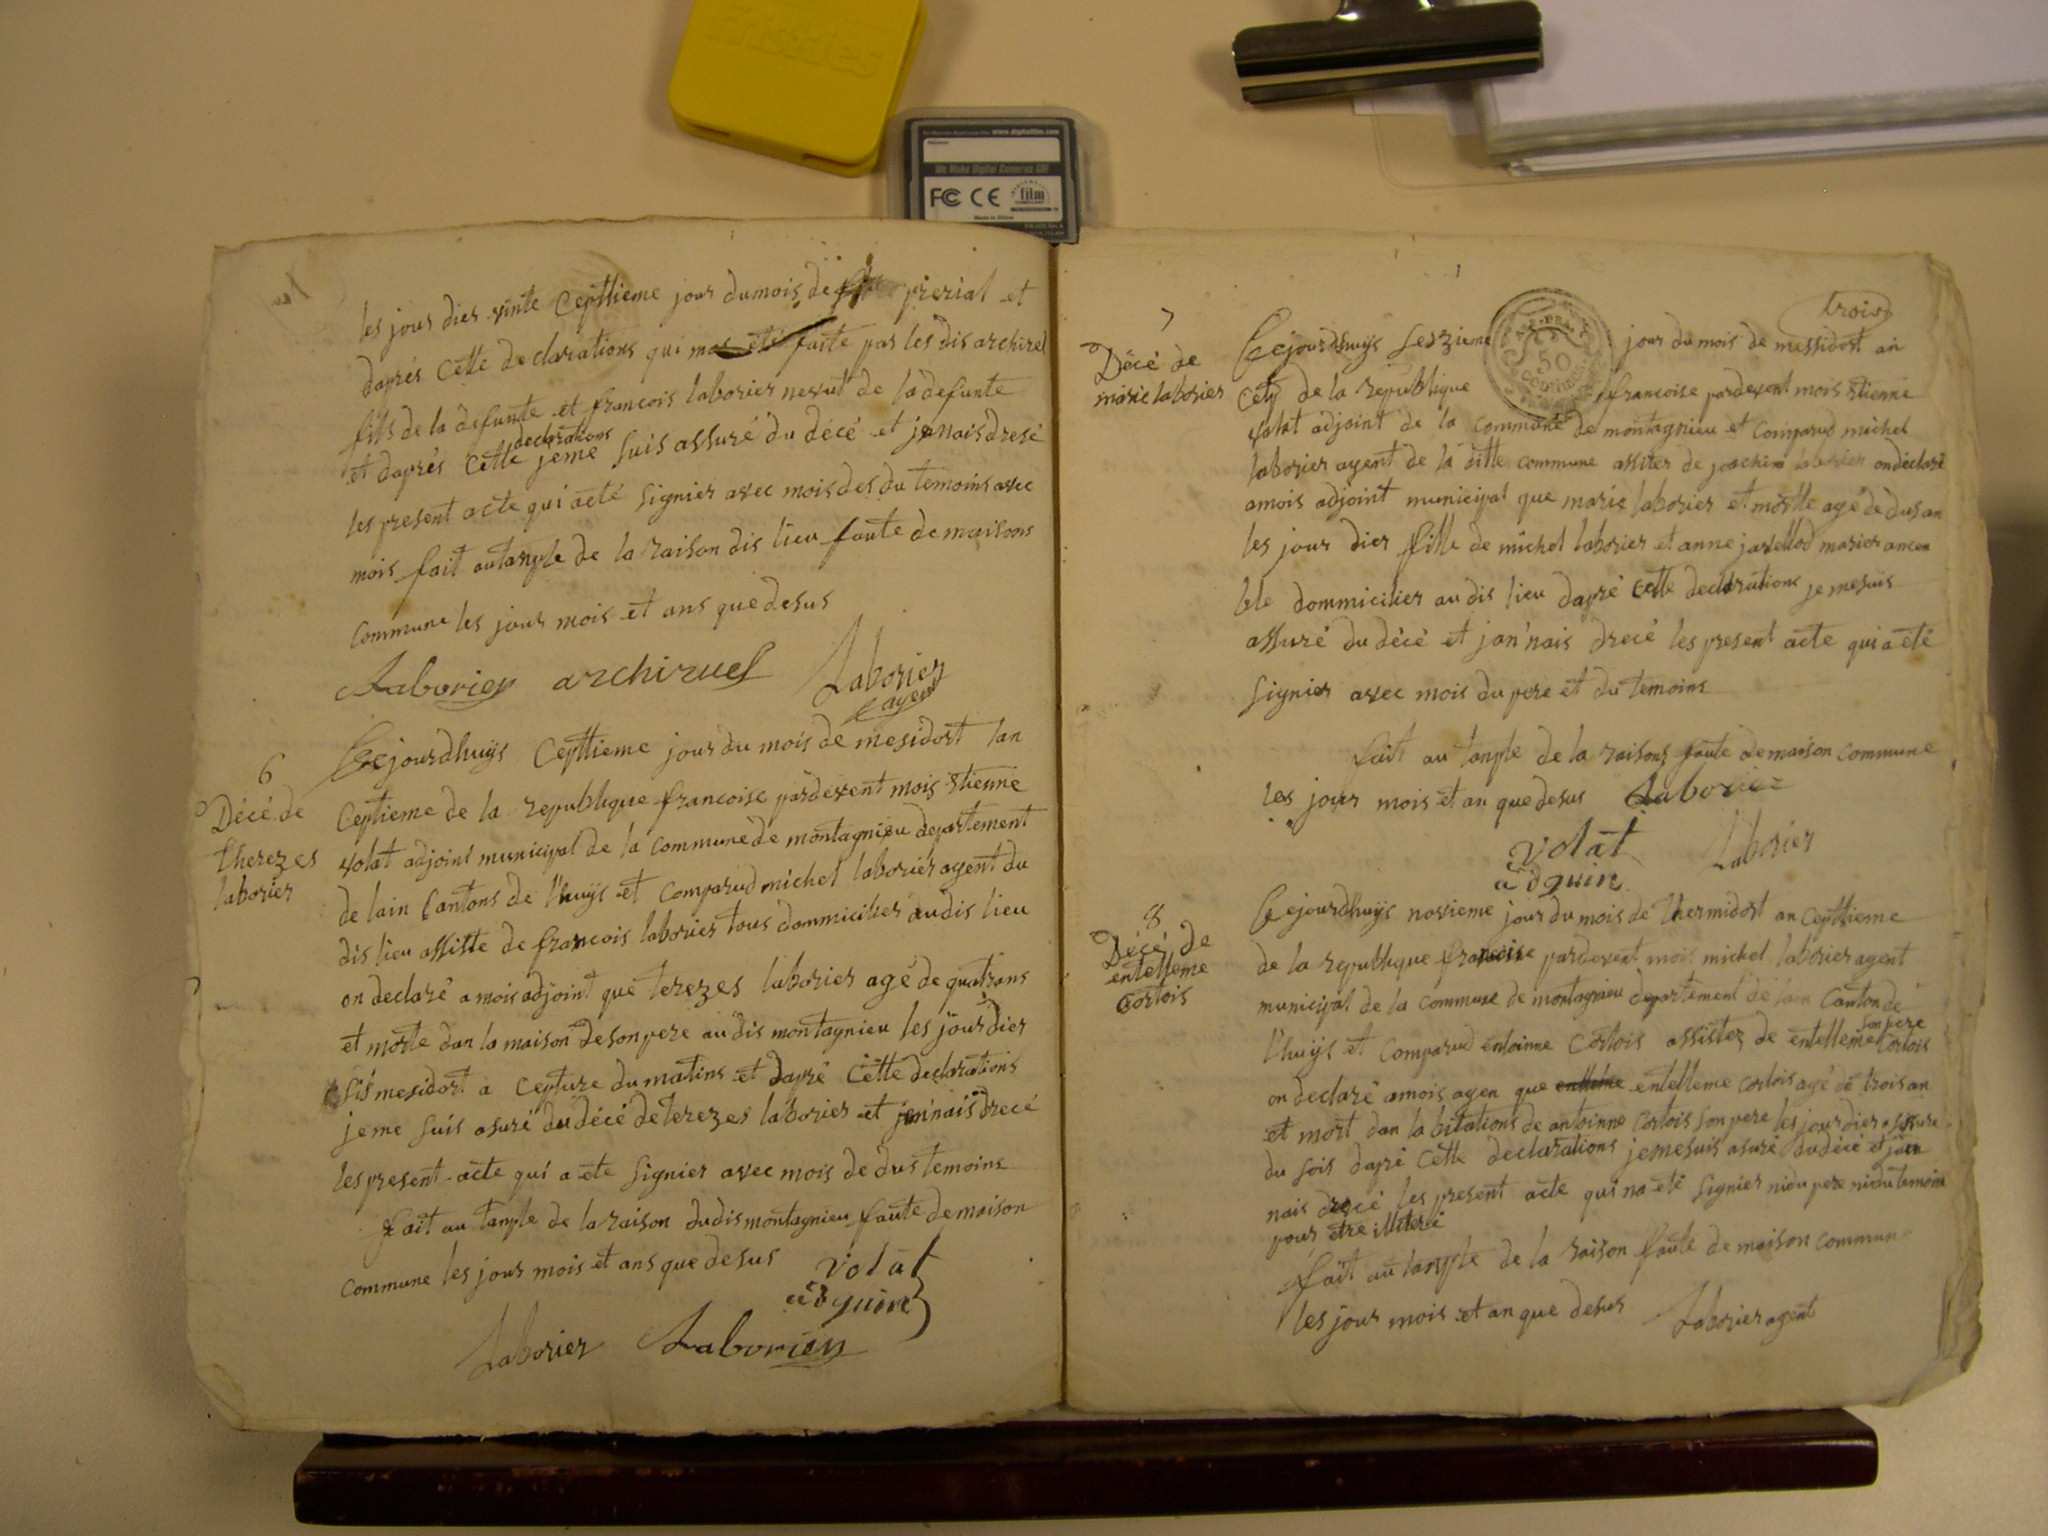 www.digitalfilm.com
We Make Digital Cameras GO!
FC CE film
les jour dier vinte Cepttieme jour du mois de prerial et
daprés Cette declarations qui mas eté faite par les dis archirel
fills de la defunte et francois laborier nevut de la defunte
et daprés Cette declarations jeme suis assuré du décé et jenais dresé
les present acte qui a eté Signier avec mois des du temoins avec
mois fait autanple de la raison dis lieu faute de maisons
Commune les jour mois et ans que desus
Laborier archiruel Laborier
agent
6
Décé de
therezes
laborier
Cejourdhuijs Cepttieme jour du mois de mesidort lan
Ceptieme de la republique francoise pardevent mois Etienne
volat adjoint municipal de la Commune de montagnieu departement
de lain Cantons de l'huijs et Comparud michel laborier agent du
dis lieu assiste de francois laborier tous dommicilier audis lieu
on declaré a mois adjoint que terezes laborier agé de quatrans
et morte dan la maison de son pere au dis montagnieu les jour dier
sis mesidort a Cepture du matins et dapré Cette declarations
jeme suis asuré du décé de terezes laborier et jen'nais drecé
les present acte qui a ete signier avec mois de dus temoins
fait au tanple de la raison dudis montagnieu faute de maison
Commune les jour mois et ans que desus volat
adguint
Laborier Laborier
trois
7
Décé de
marie laborier
Cejourdhuijs Seszieme jour du mois de messidort an
Cetp de la republique francoise pardevent mois Etienne
volat adjoint de la Commune de montagnieu et Comparud michel
laborier agent de la ditte commune assiter de joachim laborier on declaré
a mois adjoint municipal que marie laborier et morte agé de dus an
les jour dier fille de michel laborier et anne javellod marier ancen
ble dommicilier au dis lieu dapré Cette declarations je mesuis
assuré du décé et jan'nais drecé les present acte qui a eté
Signier avec mois du pere et du temoins
fait au tanple de la raisons faute demaison Commune
les jour mois et an que desus Laborier
volat Laborier
adguin
8
Décé de
entelleme
Cortois
Cejourdhuijs novieme jour du mois de thermidort an Cepttieme
de la republique francoise pardevent mois michel laborier agent
municipal de la Commune de montagnieu departement de lain Canton de
l'huijs et Comparud entoinne Cortois assistez de entelleme Cortois
son pere
on declaré a mois agen que entelleme Cortois agé de trois an
et mort dan la bitations de antoinne Cortois son pere les jour dier a sissure
du sois dapré Cette declarations je mesuis asuré du décé et jaen
nais drecé les present acte qui na eté signier nidu pere nidu temoins
pour etre illiteré
fait au tanple de la raison faute de maison commun
les jour mois et an que desus Laborier agent